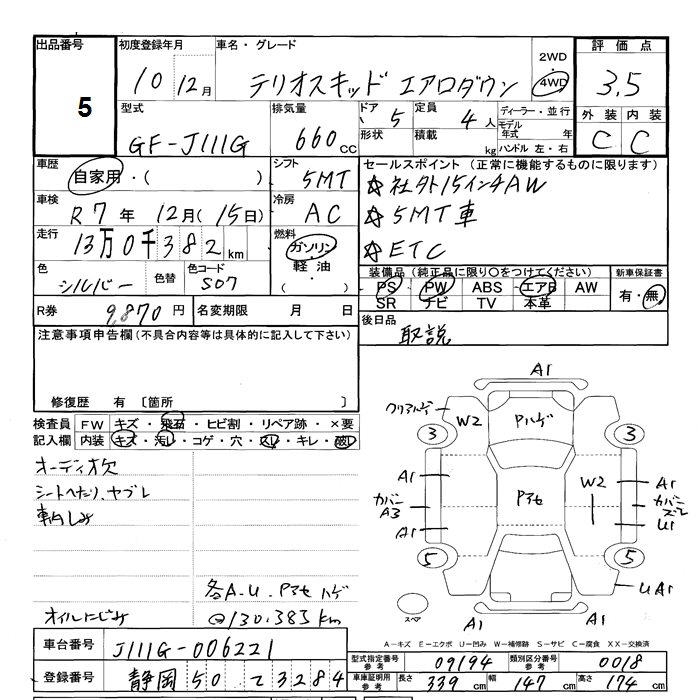 出品番号 初度登録年月 車名・グレード 評価点
5
10 12月 テリオスキッド エアロダウン 2WD 4WD 3.5
型式 排気量 ドア 5 定員 4人 ディーラー・並行 外装 内装
GF-J111G 660cc 形状 積載 kg モデル年式 年 ハンドル 左・右 C C
車歴 自家用・( ) シフト 5MT
セールスポイント(正常に機能するものに限ります)
☆社外15インチAW
☆5MT車
☆ETC
車検 R7年 12月(15日) 冷房 AC
走行 13万0千382km 燃料 ガソリン・軽油・( )
色 シルバー 色替 色コード S07
装備品(純正品に限り○をつけてください) 新車保証書
PS PW ABS エアB AW 有・無
SR ナビ TV 本革
R券 9,870円 名変期限 月 日
後日品 取説
注意事項申告欄(不具合内容等は具体的に記入して下さい)
修復歴 有〔箇所 〕
検査員 FW キズ・飛石・ヒビ割・リペア跡・×要
記入欄 内装 キズ・汚れ・コゲ・穴・スレ・キレ・破レ
オーディオ欠
シートヘたり、ヤブレ
車内しみ
各A.U.Pアセ ハゲ
オイルにじみ
@130.385km
A1
クリアハゲ W2 Pハゲ
3 3
A1 W2 A1
カバーA3 Pアセ カバーズレ
A1 U1
5 5
UA1
スペア A1 A1
A-キズ E-エクボ U-凹み W-補修跡 S-サビ C-腐食 XX-交換済
車台番号 J111G-006221
型式指定番号 参考 09194 類別区分番号 参考 0018
登録番号 静岡 50 て 3284
車庫証明用 参考 長さ 339cm 幅 147cm 高さ 174cm